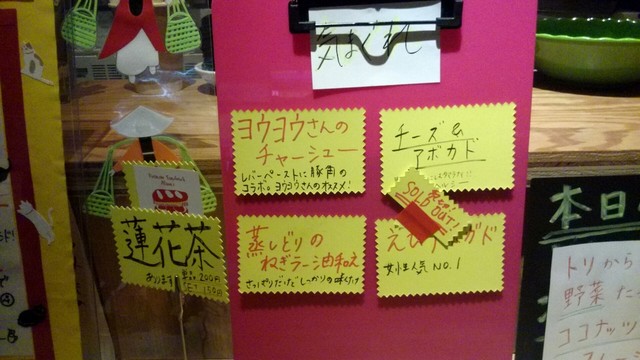 気まぐれ
ヨウヨウさんの
チャーシュー
レバーペーストに豚角の
コラボ。ヨウヨウさんのオススメ!
チーズ&
アボカド
SOLD OUT!
蓮花茶
200円
150円
蒸しどりの
ねぎラー油和え
さっぱりだけどしっかりの味つけ
えび
ガド
女性人気 NO.1
本日
トリから
野菜た
ココナッツ